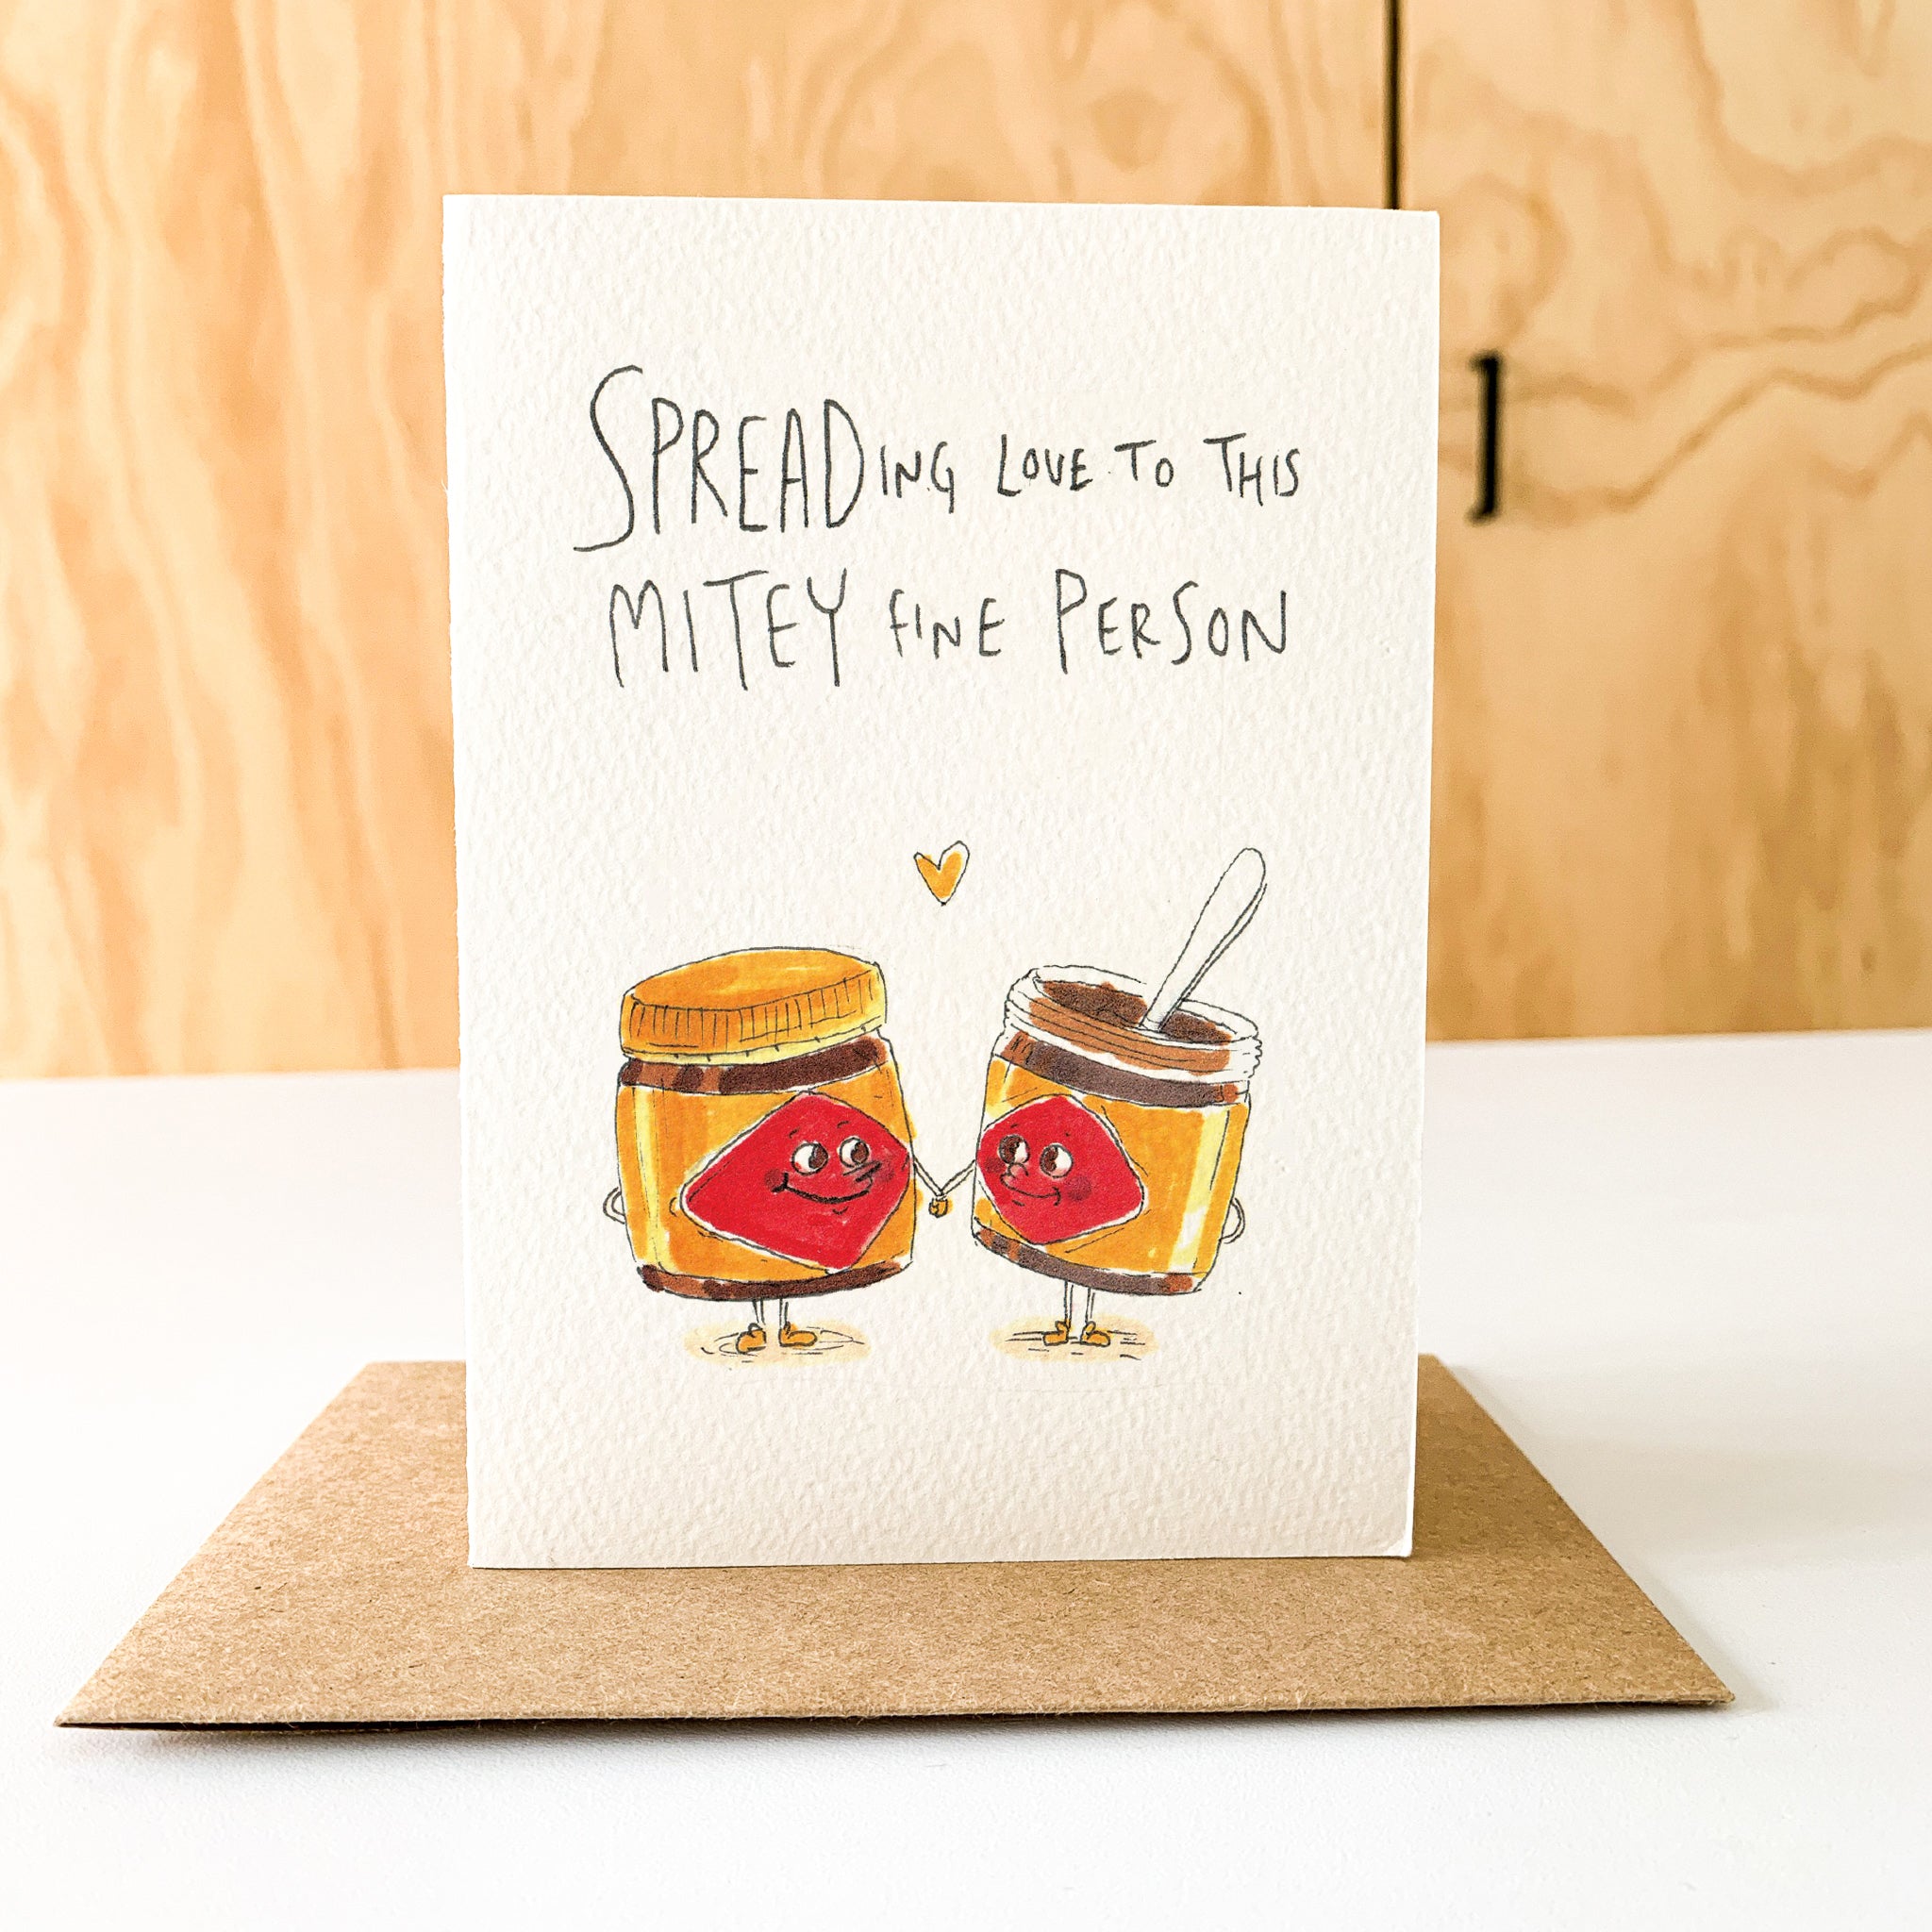 SPREADING LOVE TO THIS
MITEY FINE PERSON